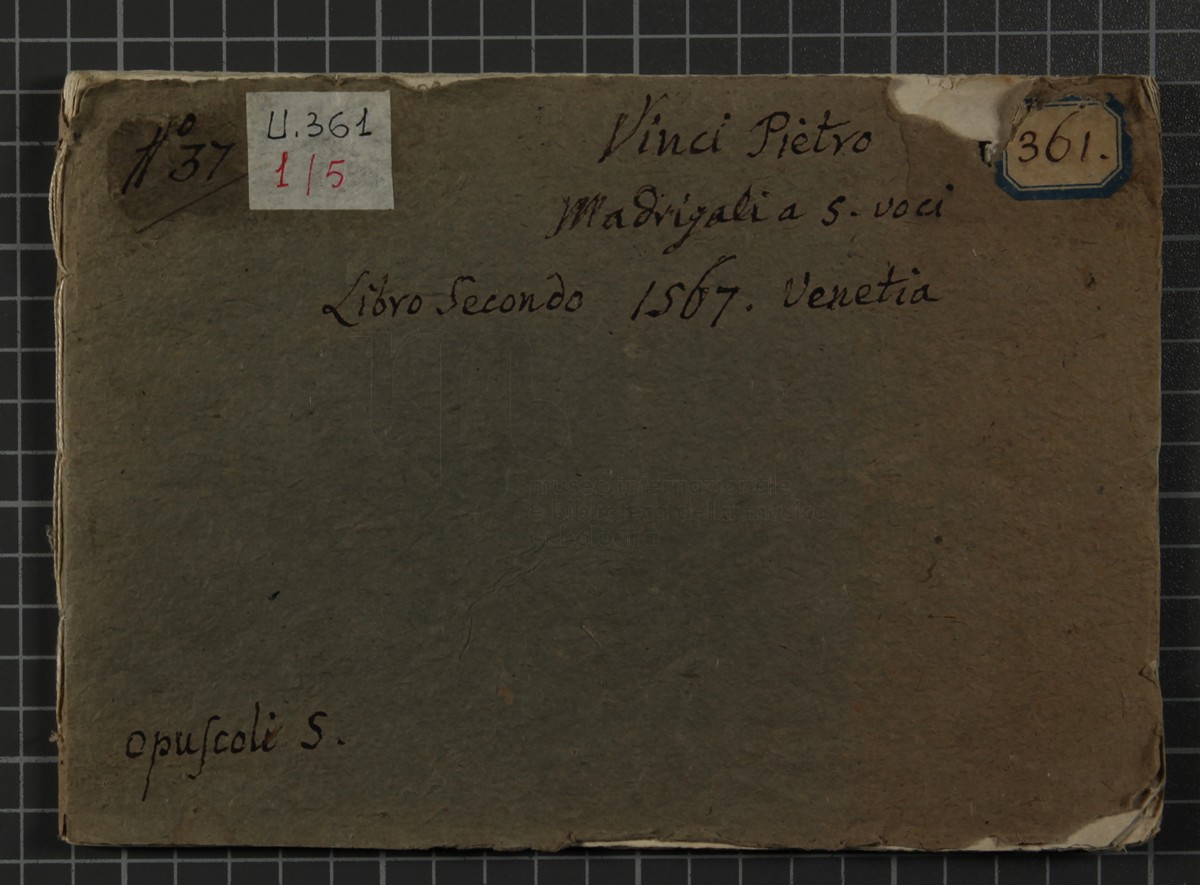 No 37
U.361
1/5
361.
Vinci Pietro
Madrigali a 5. voci
Libro Secondo 1567. Venetia
museo internazionale
e biblioteca della musica
di bologna
opuſcoli 5.